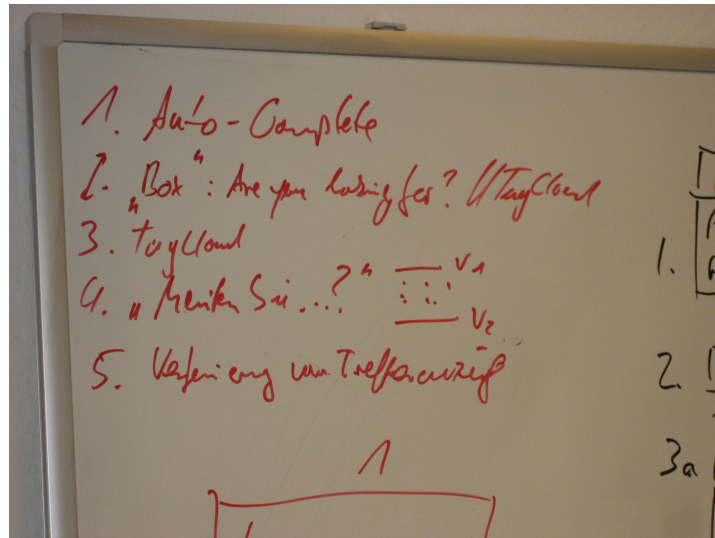 1. Auto-Complete
2. „Box“: Are you looking for? // TagCloud
3. TagCloud
4. „Meinten Sie...?“ V1
V2
5. Verfeinerung von Trefferanzeige
1
1.
2.
3a